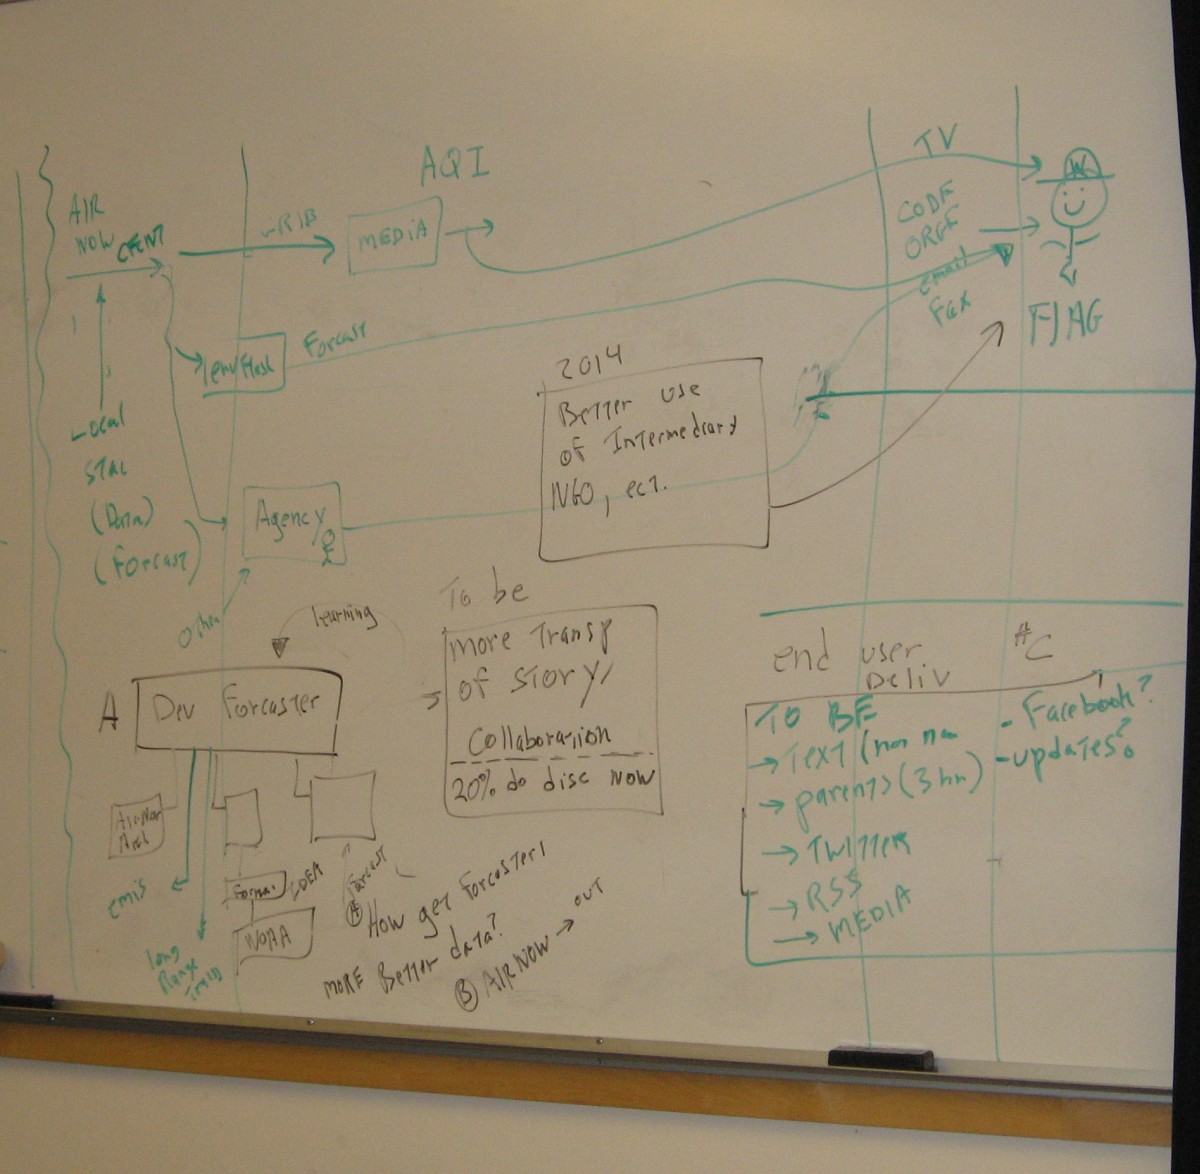 AQI
AIR
NOW
TV
MEDIA
CODE
ORGE
email
Fax
FlAG
Forcast
Local
(Data)
(Forcast)
Agency
Other
2014
Better use
of Intermediary
NGO, ect.
learning
A
Dev Forcaster
To be
more Transp
of story/
Collaboration
20% do disc now
end user
Deliv
#C
TO BE
→ Text (non
→ parents (3 hr)
→ TWITTER
→ RSS
→ MEDIA
- Facebook?
- updates?
emis
long
Range
NOAA
IDEA
Forcast
(A) How get Forcaster
MORE Better data?
(B) AIRNOW → OUT